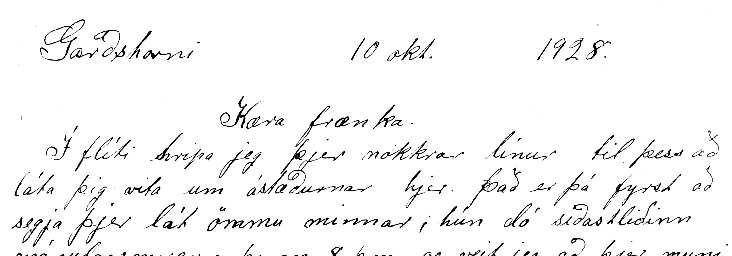 Garðshorni 10 okt. 1928.
Kæra frænka.
Í flíti hripa jeg þjer nokkrar línur til þess að
láta þig vita um ástæðurnar hjer. Það er þá fyrst að
segja þjer lát ömmu minnar; hún dó síðastliðinn
8 þ.m. og veit jeg að þjer muni